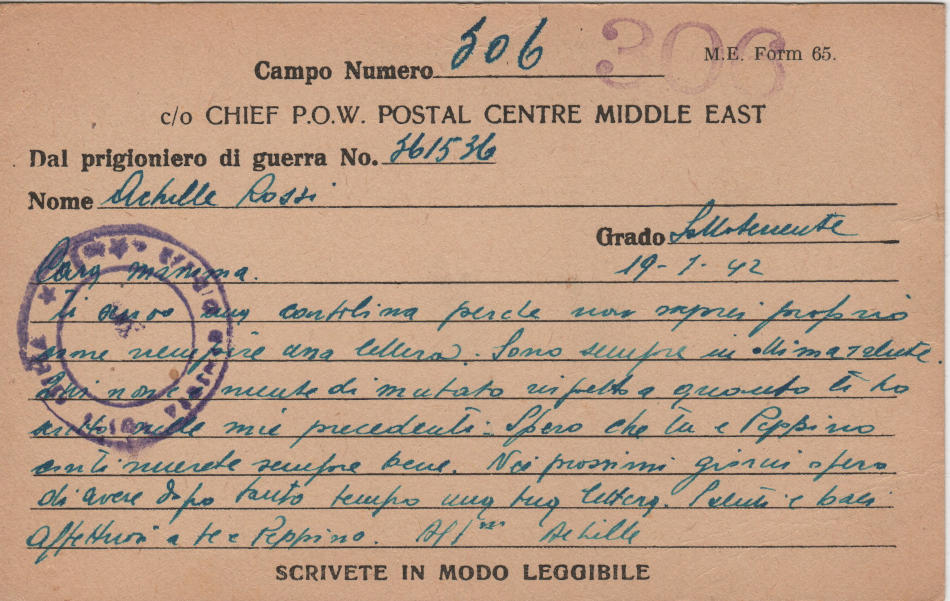 306
M.E. Form 65.
Campo Numero 306
c/o CHIEF P.O.W. POSTAL CENTRE MIDDLE EAST
Dal prigioniero di guerra No. 361536
Nome Achille Rossi
Grado Sottotenente
19-1-42
Cara mamma.
Ti invio una cartolina perche non saprei proprio
come riempire una lettera. Sono sempre in ottima salute.
Qui non è niente di mutato rispetto a quanto ti ho
scritto nelle mie precedenti. Spero che tu e Peppino
continuerete sempre bene. Nei prossimi giorni spero
di avere dopo tanto tempo una tua lettera. Saluti e baci
affettuosi a te e Peppino. Aff.mo Achille
SCRIVETE IN MODO LEGGIBILE